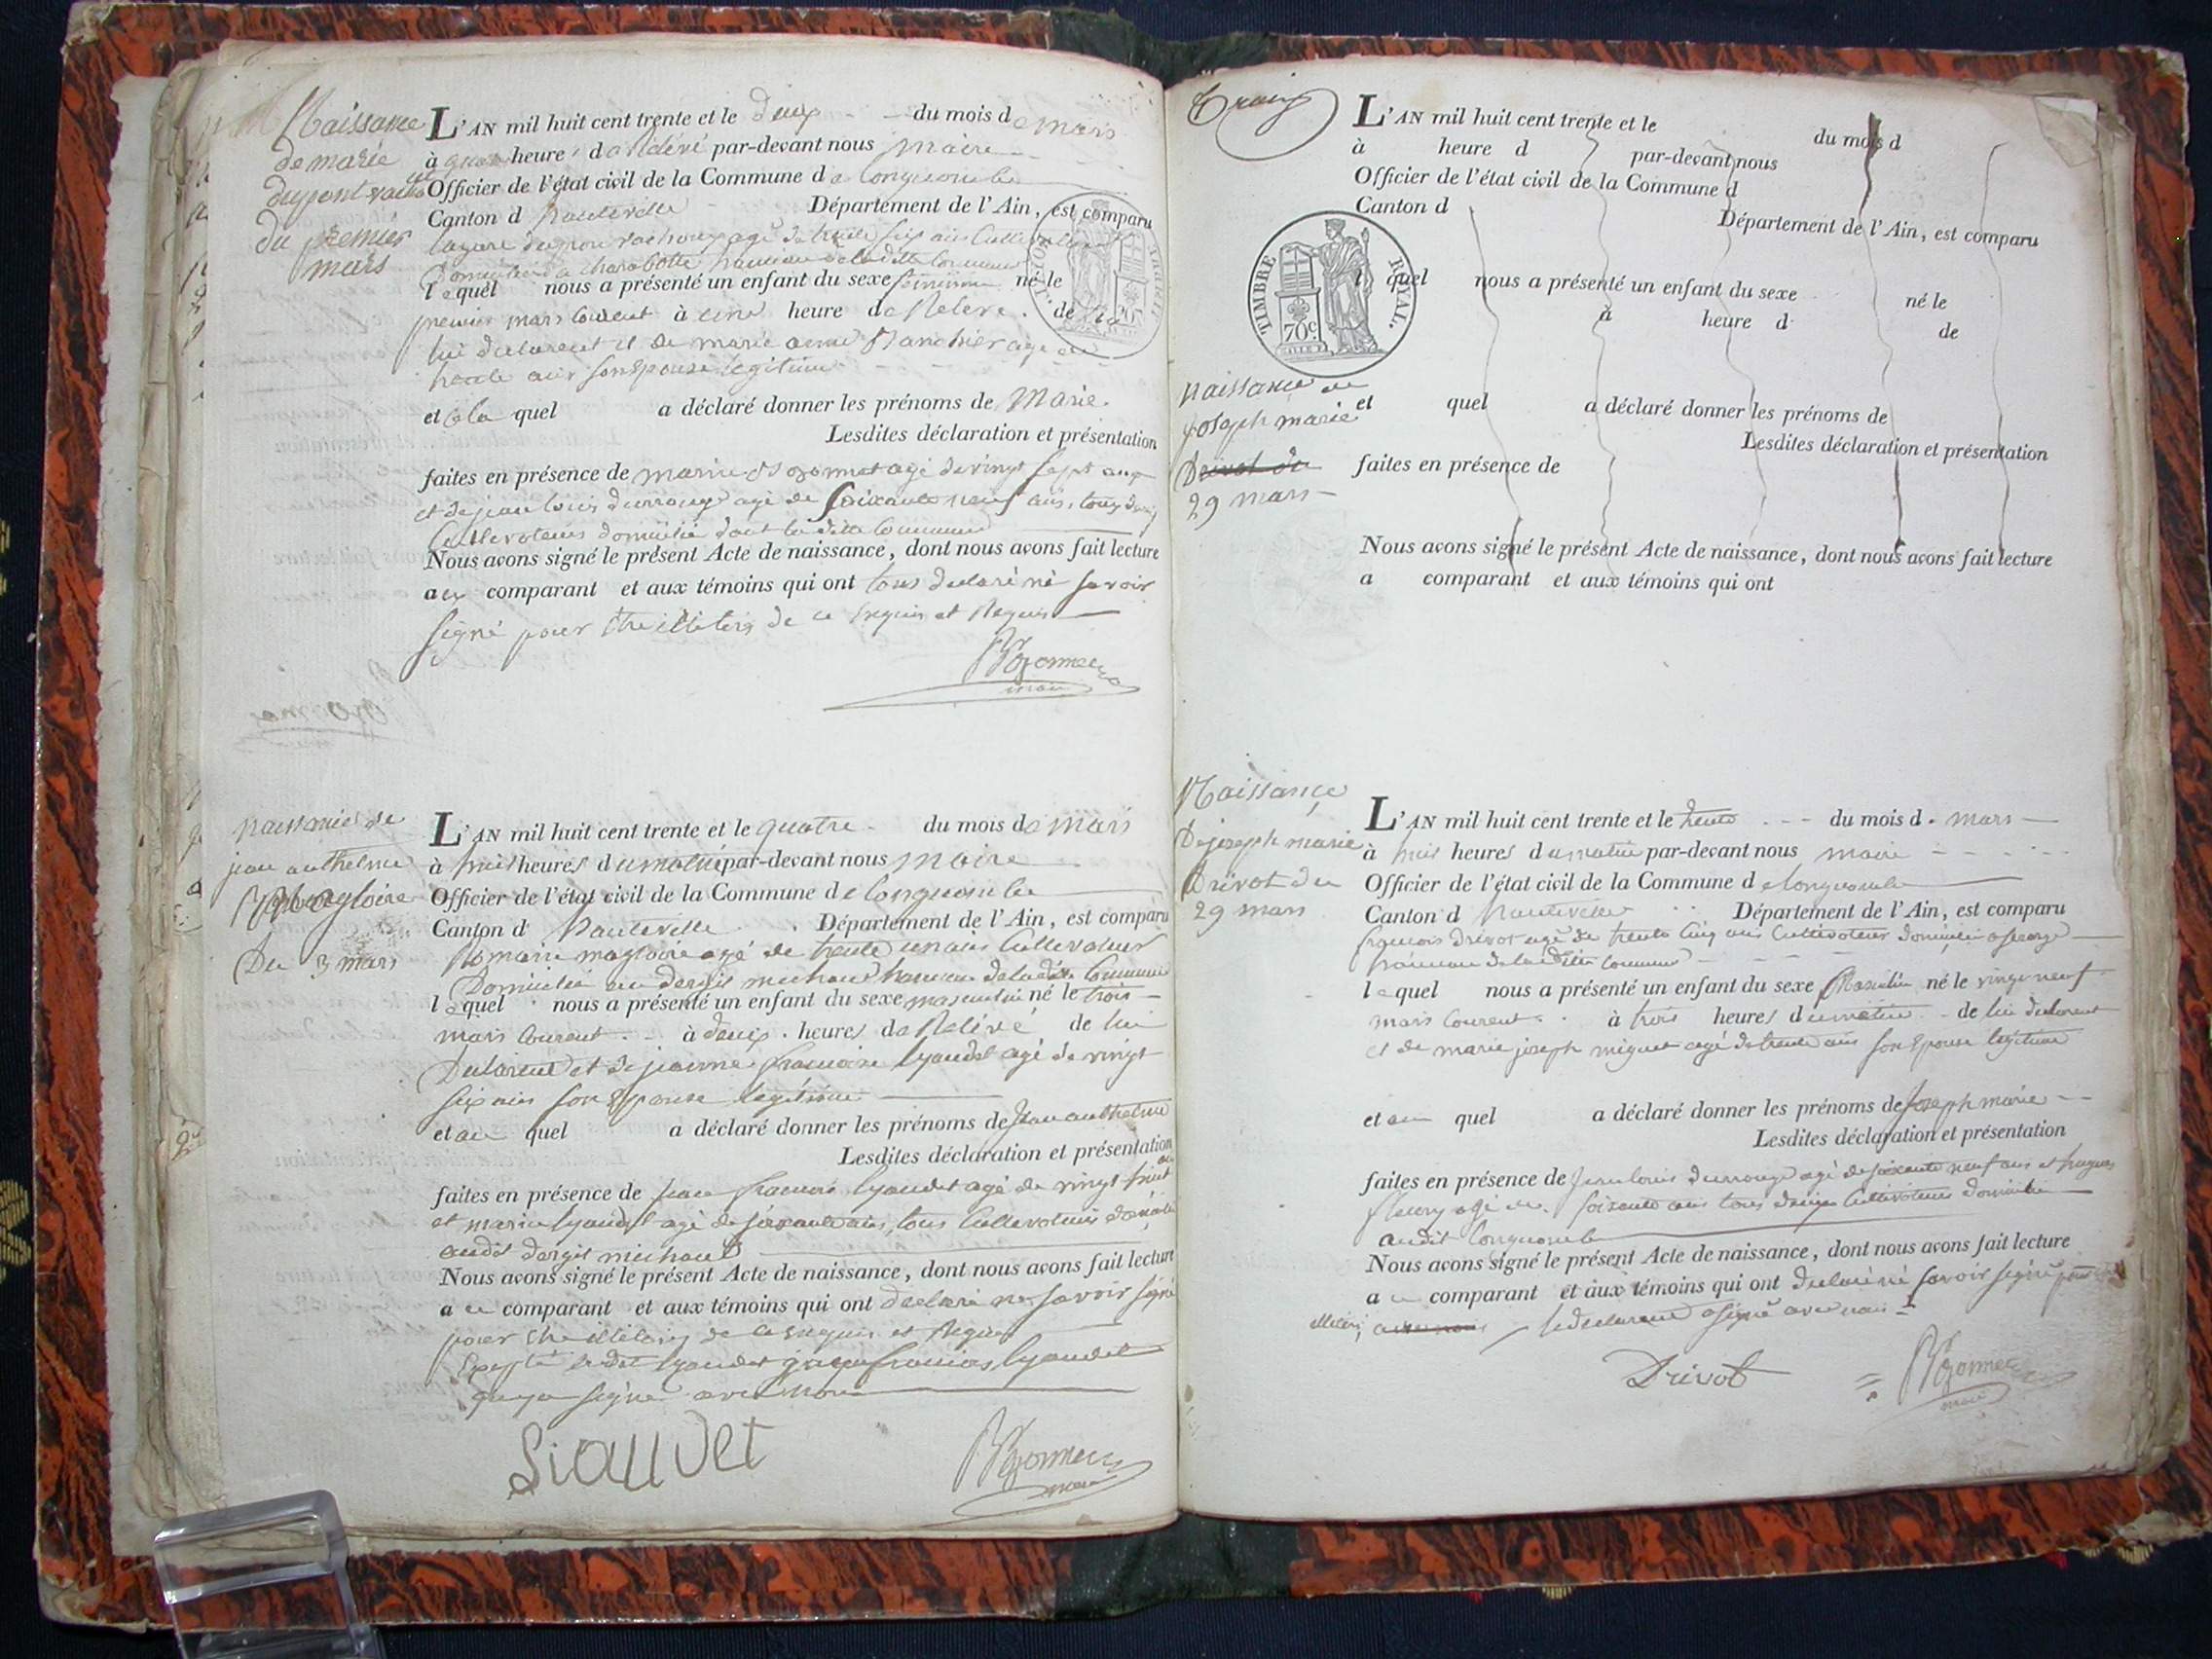 Naissance
de marie
dupont
du premier
mars
L'AN mil huit cent trente et le deux du mois de mars
à heure de Relévé par-devant nous maire
Officier de l'état civil de la Commune de longecombe
Canton d hauteville Département de l'Ain, est comparu
agé de trente six ans Cultivateur
Domicilié a charabotte hameau de laditte Commune
lequel nous a présenté un enfant du sexe feminin né le
premier mars Courent à une heure de Releve de
lui declarent et de marie anne agé de
trente ans son Epouse legitime
et a la quel a déclaré donner les prénoms de Marie.
Lesdites déclaration et présentation
faites en présence de marie agé de vingt sept ans
et de jean louis durrouge agé de Soixante neuf ans, tous deux
Cultivateurs domicilié dant la ditte Commune
Nous avons signé le présent Acte de naissance, dont nous avons fait lecture
aux comparant et aux témoins qui ont tous declaré né savoir
signé pour de ce Enquis et Requis
maire
naissance de
jean anthelme
magloire
Du 3 mars
L'AN mil huit cent trente et le quatre du mois de mars
à huit heures du matin par-devant nous maire
Officier de l'état civil de la Commune de longecombe
Canton d hauteville Département de l'Ain, est comparu
magloire agé de trente un ans Cultivateur
Domicilié au dergis michaud hameau de ladite Commune
lequel nous a présenté un enfant du sexe masculin né le trois
mars Courent à deux heures de Relévé de lui
Declarent et de jeanne francoise lyaudet agé de vingt
six ans son Epouse legitime
et au quel a déclaré donner les prénoms de Jean anthelme
Lesdites déclaration et présentation
faites en présence de francois lyaudet agé de vingt huit
et marin lyaudet agé de soixante ans, tous Cultivateurs domicilié
audit dergis michaud
Nous avons signé le présent Acte de naissance, dont nous avons fait lecture
au comparant et aux témoins qui ont declaré ne savoir signé
pour de ce enquis et Requis
Excepté ledit lyaudet francois lyaudet
qui a signé avec nous
Siauvet
maire
TIMBRE ROYAL.
70c.
L'AN mil huit cent trente et le du mois d
à heure d par-devant nous
Officier de l'état civil de la Commune d
Canton d Département de l'Ain, est comparu
l quel nous a présenté un enfant du sexe né le
à heure d de
et quel a déclaré donner les prénoms de
Lesdites déclaration et présentation
faites en présence de
Nous avons signé le présent Acte de naissance, dont nous avons fait lecture
a comparant et aux témoins qui ont
naissance de
joseph marie
Drivot du
29 mars
Naissance
De joseph marie
Drivot du
29 mars
L'AN mil huit cent trente et le trente du mois d. mars
à huit heures du matin par-devant nous maire
Officier de l'état civil de la Commune de longecombe
Canton d hauteville Département de l'Ain, est comparu
francois Drivot agé de trente cinq ans Cultivateur domicilié
hameau de laditte Commune
lequel nous a présenté un enfant du sexe Masculin né le vingt neuf
mars Courent à trois heures du matin de lui declarent
et de marie joseph miguet agé de trente ans son Epouse legitime
et au quel a déclaré donner les prénoms de Joseph marie
Lesdites déclaration et présentation
faites en présence de Jean louis durrouge agé de soixante neuf ans et hugues
fleury agé de soixante ans tous deux Cultivateurs domicilié
audit longecombe
Nous avons signé le présent Acte de naissance, dont nous avons fait lecture
au comparant et aux témoins qui ont declaré né savoir signé pour
le declarent a signé avec nous
Drivot
maire